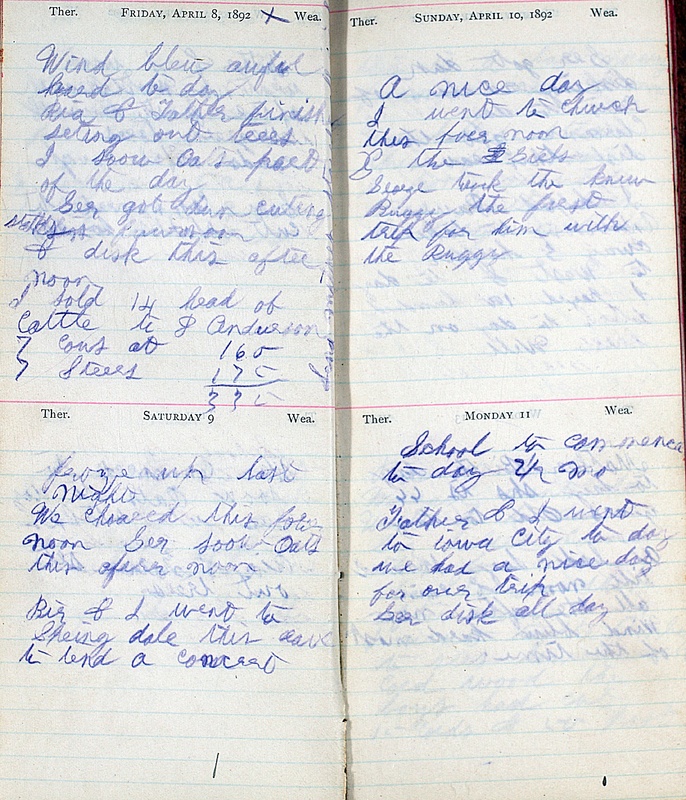 Ther. FRIDAY, APRIL 8, 1892 X Wea.
Wind blew awful
hard to day
Big & Father finish
seting out trees
I sow Oats part
of the day
Ger got don cuting
stalks noon
& disk this after
noon
I sold 14 head of
Cattle to J Anderson
7 Cows at 165
7 Steers 175
Ther. SATURDAY 9 Wea.
froze up last
Night
We choared this fore
noon Ger sow Oats
this after noon
Big & I went to
Spring dale this eave
to tend a concert
Ther. SUNDAY, APRIL 10, 1892 Wea.
A nice day
I went to church
this fore noon
& the
George tuck the knew
Buggy the first
trip for him with
the Buggy
Ther. MONDAY 11 Wea.
School to commence
to day 2½ mo
Father & I went
to iowa City to day
we had a nice day
for our trip
Ger disk all day